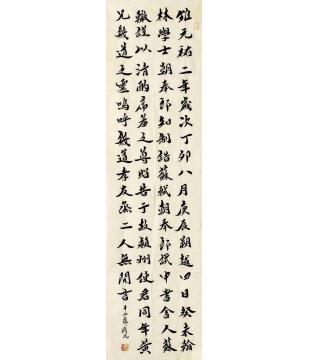 維元祐二年歲次丁卯八月庚辰朔越四日癸未翰
林學士朝奉郎知制誥蘇軾朝奉郎試中書舍人蘇
轍謹以清酌庶羞之尊昭告于故潁州使君同年黃
兄幾道之靈嗚呼幾道孝友烝烝二人無間言